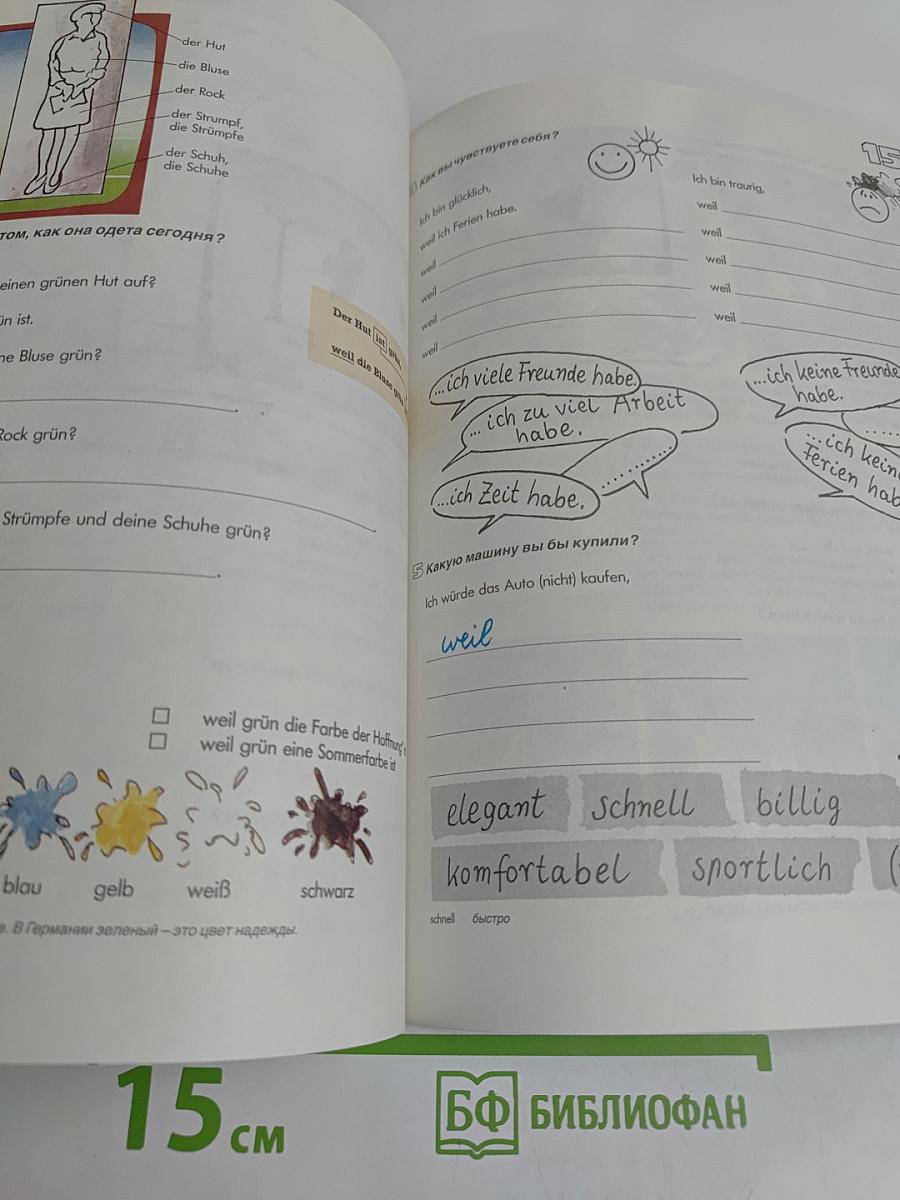 der Hut
die Bluse
der Rock
der Strumpf,
die Strümpfe
der Schuh,
die Schuhe
том, как она одета сегодня?
einen grünen Hut auf?
ün ist.
ne Bluse grün?
Rock grün?
Strümpfe und deine Schuhe grün?
Der Hut ist grün
weil die Bluse grün
weil grün die Farbe der Hoffnung
weil grün eine Sommerfarbe ist
blau gelb weiß schwarz
е. В Германии зеленый – это цвет надежды.
15
Как вы чувствуете себя?
Ich bin glücklich,
weil ich Ferien habe.
weil
weil
weil
weil
Ich bin traurig,
weil
weil
weil
weil
weil
...ich viele Freunde habe.
...ich zu viel Arbeit
habe.
...ich Zeit habe.
...ich keine Freunde
habe.
...ich kein
Ferien hab
5 Какую машину вы бы купили?
Ich würde das Auto (nicht) kaufen,
weil
elegant schnell billig
komfortabel sportlich (
schnell быстро
15 см
БФ БИБЛИОФАН